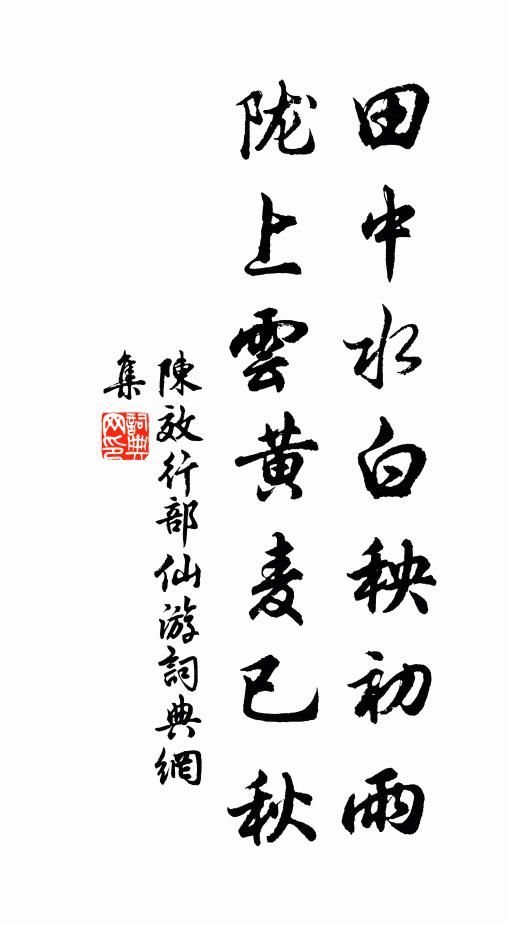 田中水白秧初雨
陇上雲黄麦已秋
陳效行部仙游詞典網
集
詞典
网印